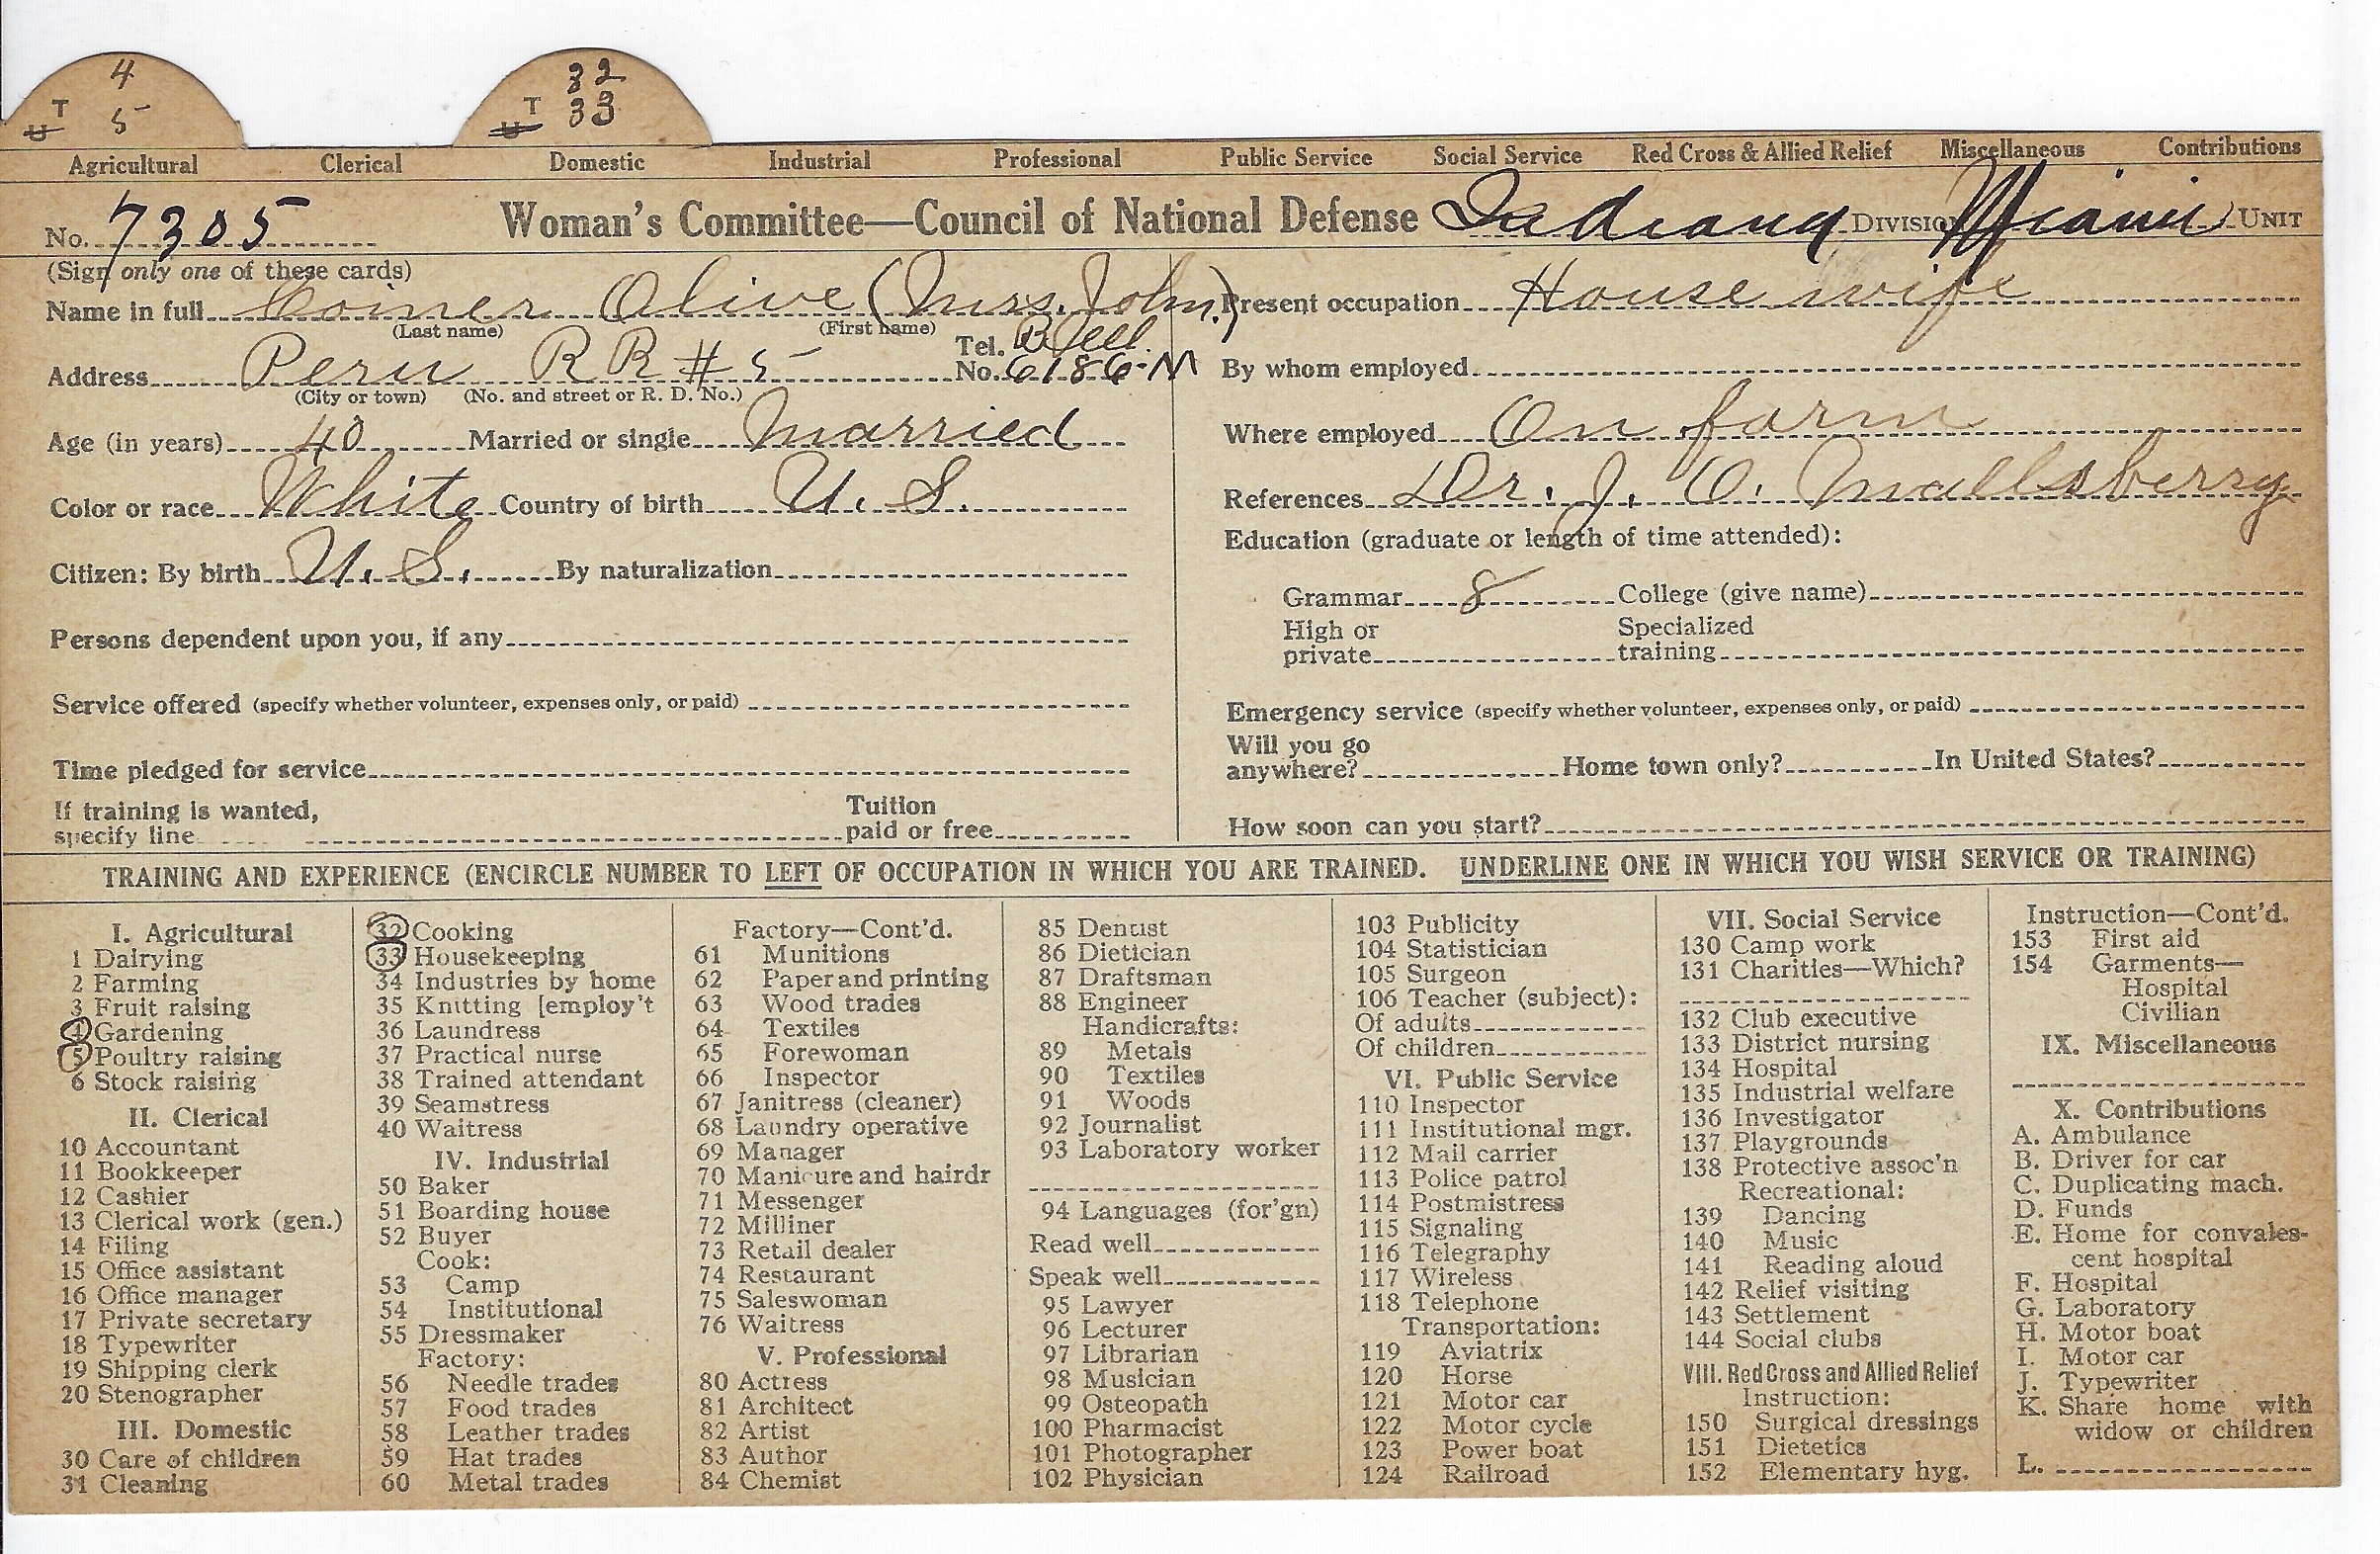 4 32
T T
U 5 U 33
Agricultural Clerical Domestic Industrial Professional Public Service Social Service Red Cross & Allied Relief Miscellaneous Contributions
No. 7305 Woman's Committee—Council of National Defense Indiana DIVISION Miami UNIT
(Sign only one of these cards)
Name in full Comer Olive (Mrs. John.)
(Last name) (First name)
Address Peru RR #5 Tel. No. Bell. 6186-M
(City or town) (No. and street or R. D. No.)
Age (in years) 40 Married or single Married
Color or race White Country of birth U. S.
Citizen: By birth U. S. By naturalization
Persons dependent upon you, if any
Service offered (specify whether volunteer, expenses only, or paid)
Time pledged for service
If training is wanted,
specify line Tuition paid or free
Present occupation House wife
By whom employed
Where employed On farm
References Dr. J. O. Mallsberry
Education (graduate or length of time attended):
Grammar 8 College (give name)
High or private Specialized training
Emergency service (specify whether volunteer, expenses only, or paid)
Will you go anywhere? Home town only? In United States?
How soon can you start?
TRAINING AND EXPERIENCE (ENCIRCLE NUMBER TO LEFT OF OCCUPATION IN WHICH YOU ARE TRAINED. UNDERLINE ONE IN WHICH YOU WISH SERVICE OR TRAINING)
I. Agricultural
1 Dairying
2 Farming
3 Fruit raising
4 Gardening
5 Poultry raising
6 Stock raising
II. Clerical
10 Accountant
11 Bookkeeper
12 Cashier
13 Clerical work (gen.)
14 Filing
15 Office assistant
16 Office manager
17 Private secretary
18 Typewriter
19 Shipping clerk
20 Stenographer
III. Domestic
30 Care of children
31 Cleaning
32 Cooking
33 Housekeeping
34 Industries by home
35 Knitting [employ't
36 Laundress
37 Practical nurse
38 Trained attendant
39 Seamstress
40 Waitress
IV. Industrial
50 Baker
51 Boarding house
52 Buyer
Cook:
53 Camp
54 Institutional
55 Dressmaker
Factory:
56 Needle trades
57 Food trades
58 Leather trades
59 Hat trades
60 Metal trades
Factory—Cont'd.
61 Munitions
62 Paper and printing
63 Wood trades
64 Textiles
65 Forewoman
66 Inspector
67 Janitress (cleaner)
68 Laundry operative
69 Manager
70 Manicure and hairdr
71 Messenger
72 Milliner
73 Retail dealer
74 Restaurant
75 Saleswoman
76 Waitress
V. Professional
80 Actress
81 Architect
82 Artist
83 Author
84 Chemist
85 Dentist
86 Dietician
87 Draftsman
88 Engineer
Handicrafts:
89 Metals
90 Textiles
91 Woods
92 Journalist
93 Laboratory worker
94 Languages (for'gn)
Read well
Speak well
95 Lawyer
96 Lecturer
97 Librarian
98 Musician
99 Osteopath
100 Pharmacist
101 Photographer
102 Physician
103 Publicity
104 Statistician
105 Surgeon
106 Teacher (subject):
Of adults
Of children
VI. Public Service
110 Inspector
111 Institutional mgr.
112 Mail carrier
113 Police patrol
114 Postmistress
115 Signaling
116 Telegraphy
117 Wireless
118 Telephone
Transportation:
119 Aviatrix
120 Horse
121 Motor car
122 Motor cycle
123 Power boat
124 Railroad
VII. Social Service
130 Camp work
131 Charities—Which?
132 Club executive
133 District nursing
134 Hospital
135 Industrial welfare
136 Investigator
137 Playgrounds
138 Protective assoc'n
Recreational:
139 Dancing
140 Music
141 Reading aloud
142 Relief visiting
143 Settlement
144 Social clubs
VIII. Red Cross and Allied Relief
Instruction:
150 Surgical dressings
151 Dietetics
152 Elementary hyg.
Instruction—Cont'd.
153 First aid
154 Garments—
Hospital
Civilian
IX. Miscellaneous
X. Contributions
A. Ambulance
B. Driver for car
C. Duplicating mach.
D. Funds
E. Home for convales-
cent hospital
F. Hospital
G. Laboratory
H. Motor boat
I. Motor car
J. Typewriter
K. Share home with
widow or children
L.